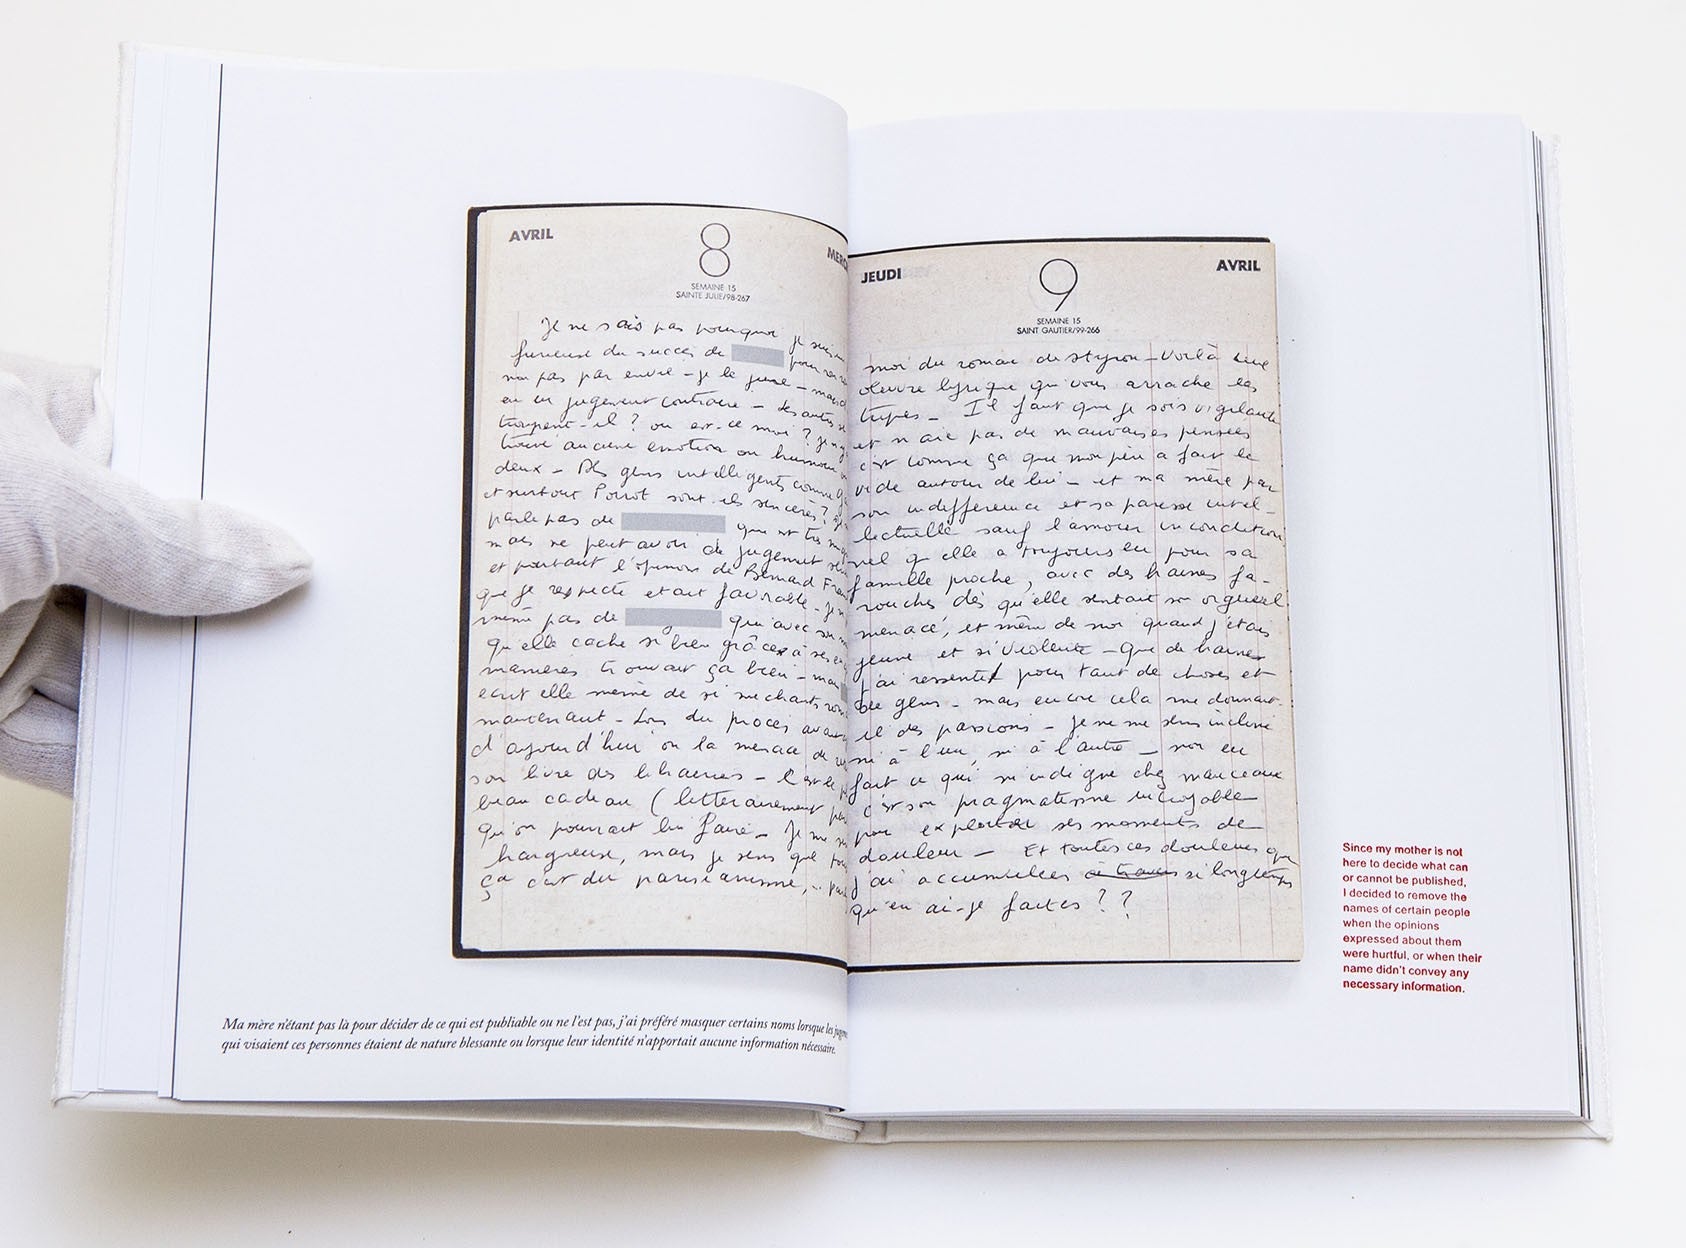 AVRIL
8
SEMAINE 15
SAINTE JULIE/98-267
Je ne sais pas pourquoi je suis
furieuse du succès de pour
non pas par envie - je le jure - mais
en un jugement contraire - Les autres se
trompent-il ? ou est-ce moi ? Je n'y
trouve aucune émotion ou humour
deux - Des gens intelligents comme
et surtout Poirot sont-ils sincères ?
parle pas de qui est très
mais ne peut avoir de jugement
et pourtant l'opinion de Bernard Fran
que je respecte était favorable - Je
même pas de qui avec son
qu'elle cache si bien grâce à ses
manières trouvait ça bien - mais
écrit elle même de si méchants
maintenant - Lors du procès
d'aujourd'hui on la menace de
son livre des librairies - C'est le
beau cadeau (littérairement
qu'on pourrait lui faire - Je me
hargneuse, mais je sens que
ça c'est du parisianisme,
JEUDI
9
AVRIL
SEMAINE 15
SAINT GAUTIER/99-266
moi du roman de Styron - Voilà une
oeuvre lyrique qui vous arrache les
tripes - Il faut que je sois vigilante
et n'aie pas de mauvaises pensées
c'est comme ça que mon père a fait le
vide autour de lui - et ma mère par
son indifférence et sa paresse intel-
lectuelle sauf l'amour incondition
nel qu'elle a toujours eu pour sa
famille proche, avec des haines fa-
rouches dès qu'elle sentait son orgueil
menacé, et même de moi quand j'étais
jeune et si violente - Que de haines
j'ai ressenti pour tant de choses et
de gens - mais encore cela me donnait-
il des passions - Je ne me sens incline
ni à l'un, ni à l'autre - non en
fait ce qui m'indigne chez manceaux
c'est son pragmatisme incroyable
pour exploiter ses moments de
douleur - Et toutes ces douleurs que
j'ai accumulées à travers si longtemps
qu'en ai-je faites ? ?
Since my mother is not
here to decide what can
or cannot be published,
I decided to remove the
names of certain people
when the opinions
expressed about them
were hurtful, or when their
name didn't convey any
necessary information.
Ma mère n'étant pas là pour décider de ce qui est publiable ou ne l'est pas, j'ai préféré masquer certains noms lorsque les
qui visaient ces personnes étaient de nature blessante ou lorsque leur identité n'apportait aucune information nécessaire.